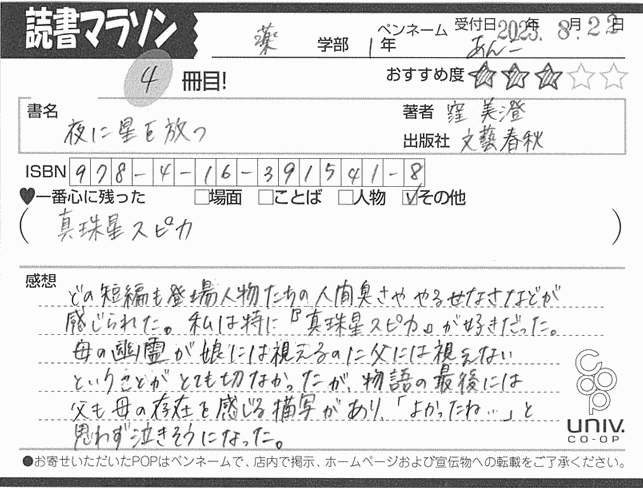 読書マラソン
薬 学部 1年 ペンネーム あんこ 受付日 2023年 8月22日
4 冊目!
おすすめ度 ★★★☆☆
書名 夜に星を放つ
著者 窪 美澄
出版社 文藝春秋
ISBN 978-4-16-391541-8
♥一番心に残った □場面 □ことば □人物 ☑その他
(真珠星スピカ)
感想
どの短編も登場人物たちの人間臭さややるせなさなどが
感じられた。私は特に『真珠星スピカ』が好きだった。
母の幽霊が娘には視えるのに父には視えない
ということがとても切なかったが、物語の最後には
父も母の存在を感じる描写があり、「よかったね…」と
思わず泣きそうになった。
coop
UNIV.
CO-OP
●お寄せいただいたPOPはペンネームで、店内で掲示、ホームページおよび宣伝物への転載をご了承ください。